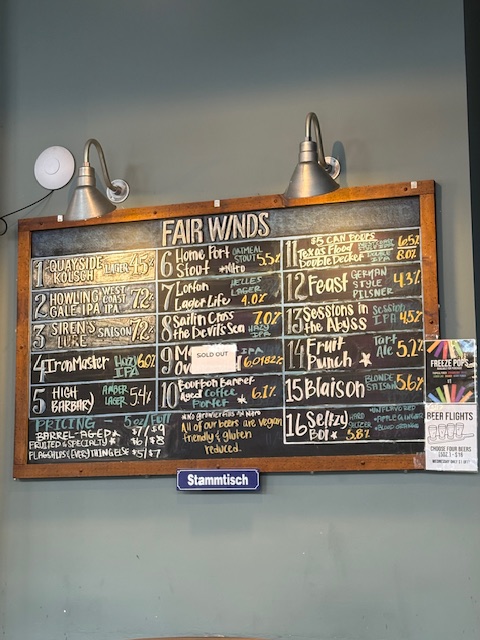 FAIR WINDS
1 QUAYSIDE KÖLSCH LAGER 4.5%
2 HOWLING GALE IPA WEST COAST IPA 7.2%
3 SIREN'S LURE SAISON 7.2%
4 IRONMASTER HAZY IPA 6.0%
5 HIGH BARBARY AMBER LAGER 5.4%
PRICING 5oz/FULL
BARREL-AGED $7/$9
FRUITED & SPECIALTY $6/$8
FLAGSHIPS (EVERYTHING ELSE $5/$7
6 Home Port Stout OATMEAL STOUT 5.5%
*Nitro
7 Lorton Lager Life HELLES LAGER 4.0%
8 Sailin Cross the Devil's Sea HAZY IPA 7.0%
9 IPA
SOLD OUT
10 Bourbon Barrel Aged Coffee Porter * 6.1%
All of our beers are vegan friendly & gluten reduced.
11 $5 CAN POURS
Texas Flood 6.5%
Double Decker DOUBLE IPA 8.0%
12 Feast GERMAN STYLE PILSNER 4.3%
13 Sessions in the Abyss Session IPA 4.5%
14 Fruit Punch * Tart Ale 5.2%
15 Blaison BLONDE SAISON 5.6%
16 Seltzy BOI * HARD SELTZER 5.8%
*UNFLAVORED
*BLOOD ORANGE
Stammtisch
FREEZE POPS
$3
BEER FLIGHTS
CHOOSE FOUR BEERS
(5OZ) - $16